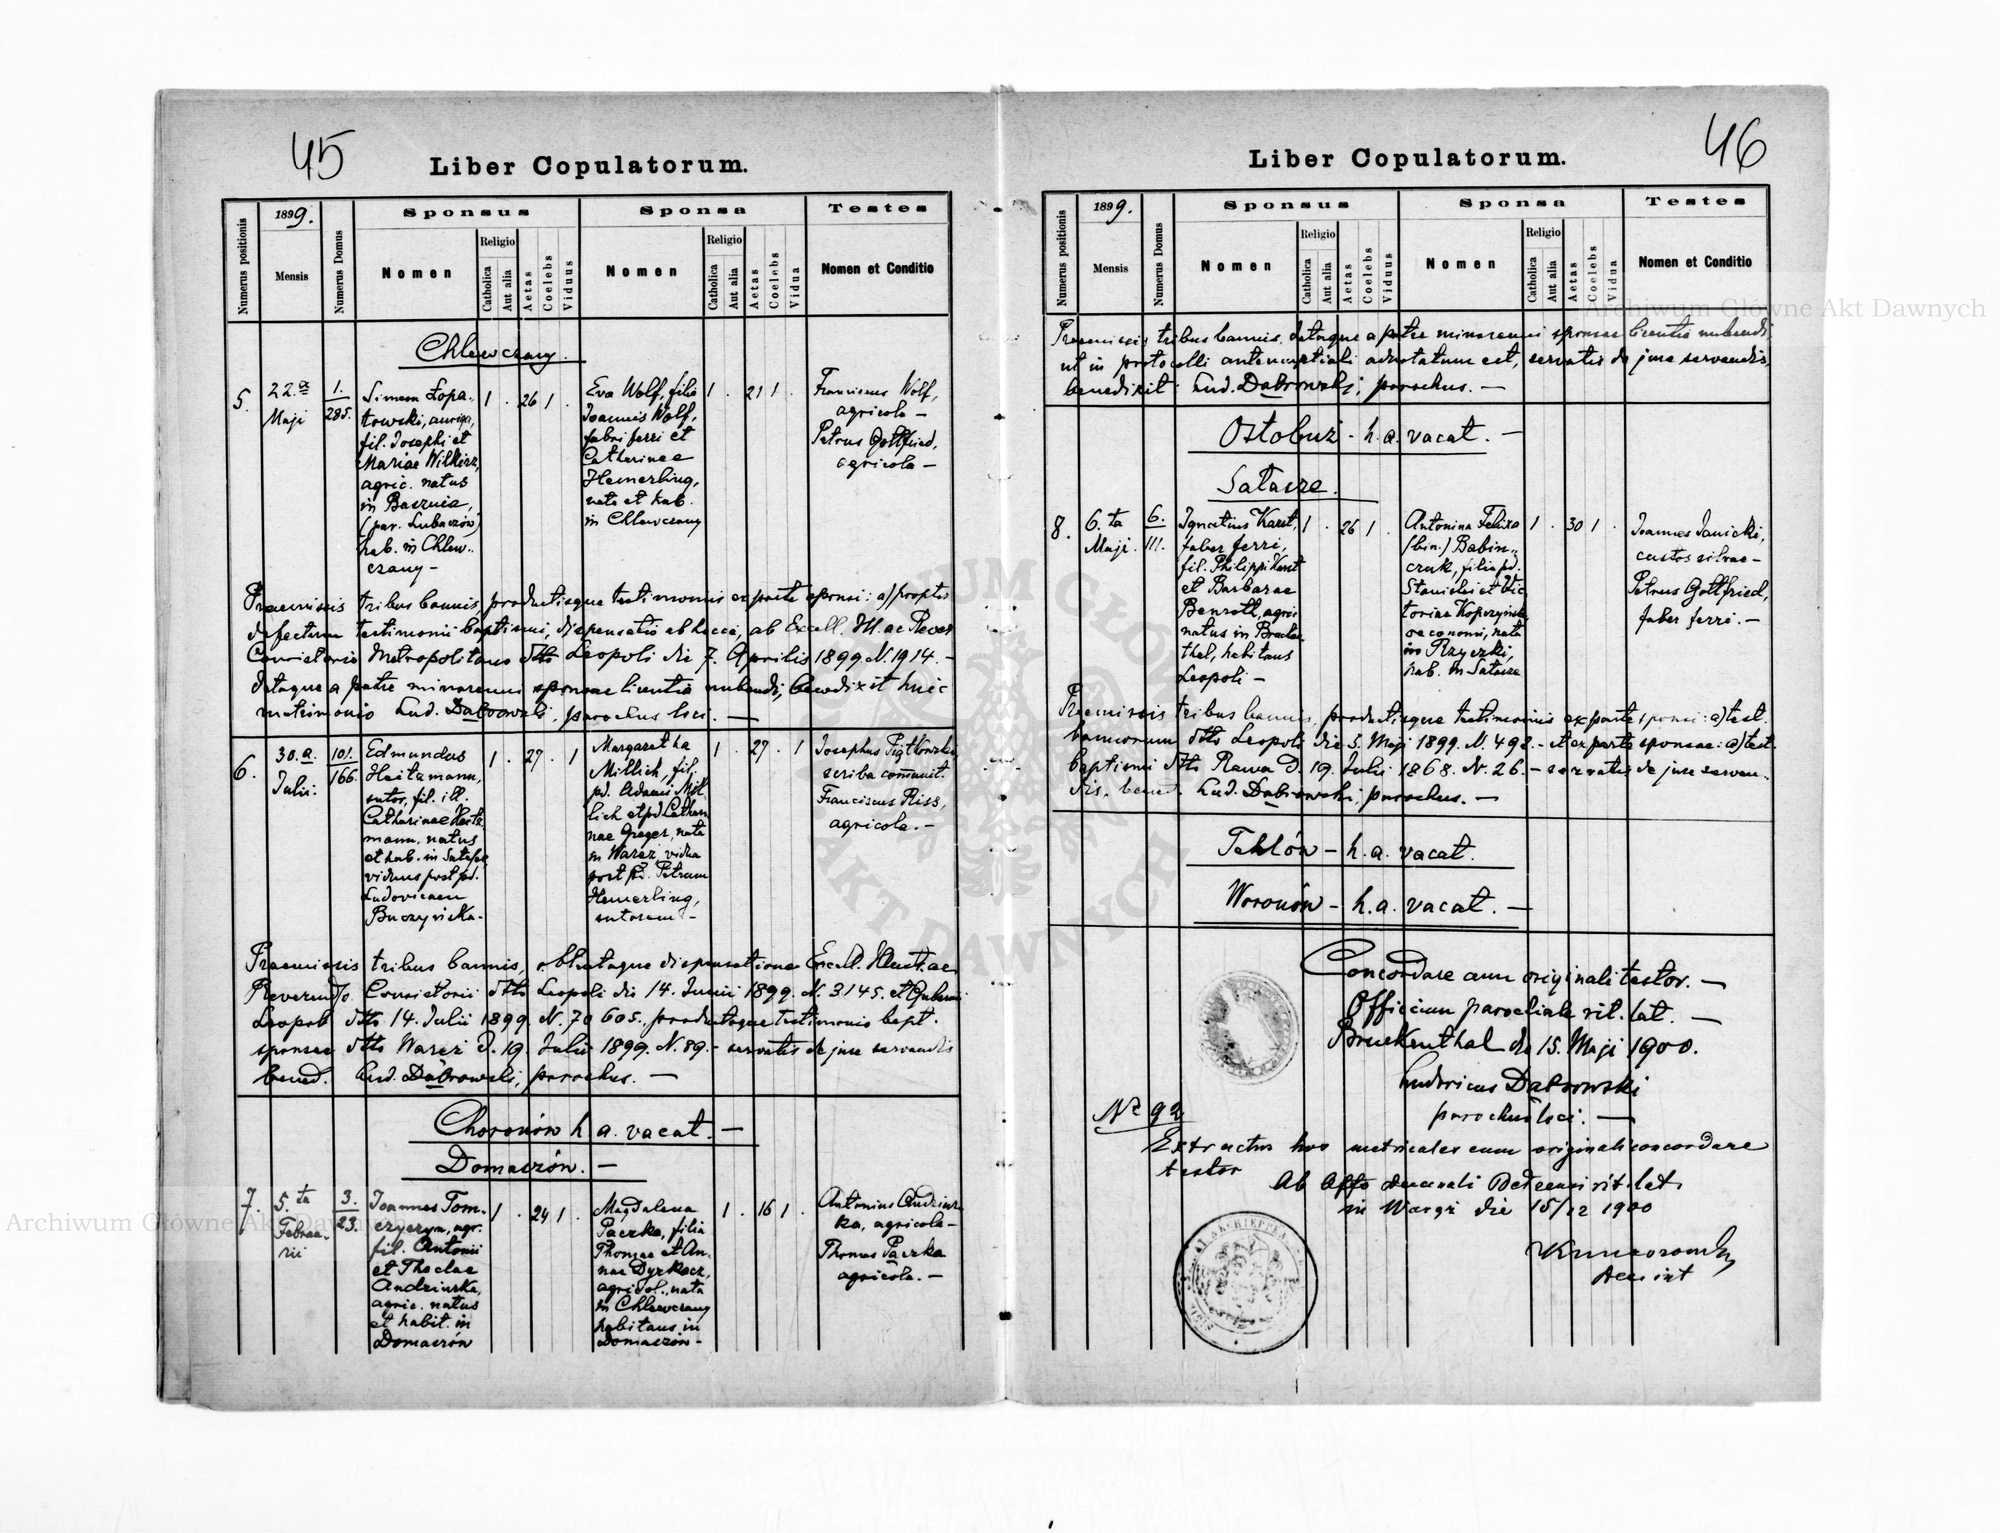 45
Liber Copulatorum.
Numerus positionis
1899.
Mensis
Numerus Domus
Sponsus
Nomen
Religio
Catholica
Aut alia
Aetas
Coelebs
Viduus
Sponsa
Nomen
Religio
Catholica
Aut alia
Aetas
Coelebs
Vidua
Testes
Nomen et Conditio
Chlewczany.
5.
22a
Maji
1.
285.
Simeon Łopa-
towski, aurifa,
fil. Josephi et
Mariae Wilkisz,
agric. natus
in Basznia,
(par. Lubaczów)
hab. in Chlew-
czany -
1 . 26 1 .
Eva Wolf, filia
Joannis Wolf,
fabri ferri et
Catharinae
Hemerling,
nata et hab.
in Chlewczany
1 . 21 1 .
Franciscus Wolf,
agricola -
Petrus Gottfried,
agricola -
Praemissis tribus bannis, productisque testimoniis ex parte sponsi: a) propter
defectum testimonii baptismi, dispensatio ab hocce, ab Excell. Ill. ac Rever
Consistorio Metropolitano dtto Leopoli die 7. Aprilis 1899. N. 1914. -
dataque a patre minorenni sponsae licentia nubendi, benedixit huic
matrimonio Lud. Dąbrowski, parochus loci. -
6.
30.a
Julii.
101.
166.
Edmundus
Heitzmann,
sutor, fil. ill.
Catharinae Heitz
mann, natus
et hab. in Salasze
viduus post pd.
Ludovicam
Buszyńska -
1 . 27 . 1
Margaretha
Millich, fil.
pd. Adami Mil
lich et pd. Cathari
nae Greger, nata
in Waręż, vidua
post pd. Petrum
Hemerling,
sutorem -
1 . 27 . 1
Josephus Piątkowski,
scriba communit.
Franciscus Riss,
agricola. -
Praemissis tribus bannis, oblataque dispensatione Excell. Illust. ac
Reverend. Consistorii dtto Leopoli die 14. Junii 1899. N. 3145. et Gubernii
Leopoli dtto 14. Julii 1899. N. 70605. productoque testimonio bapt.
sponsae dtto Waręż d. 19. Julii 1899. N. 89. - servatis de jure servandis
bened. Lud. Dąbrowski, parochus. -
Choronów h. a. vacat. -
Domaszów. -
7.
5.ta
Februa-
rii
3.
23.
Joannes Tom-
czyszyn, agr.
fil. Antonii
et Theclae
Andziurka,
agric. natus
et habit. in
Domaszów
1 . 24 1 .
Magdalena
Paczka, filia
Thomae et An-
nae Dyrkacz,
agricol., nata
in Chlewczany
habitans in
Domaszów -
1 . 16 1 .
Antonius Andziur-
ka, agricola -
Thomas Paczka
agricola. -
46
Liber Copulatorum.
Numerus positionis
1899.
Mensis
Numerus Domus
Sponsus
Nomen
Religio
Catholica
Aut alia
Aetas
Coelebs
Viduus
Sponsa
Nomen
Religio
Catholica
Aut alia
Aetas
Coelebs
Vidua
Testes
Nomen et Conditio
Praemissis tribus bannis, dataque a patre minorenni sponsae licentia nubendi,
ut in protocolli antenuptiali adnotatum est, servatis de jure servandis,
benedixit Lud. Dąbrowski, parochus. -
Ostobuż - h. a. vacat. -
Salasze.
8.
6.ta
Maji.
6.
111.
Ignatius Karst,
faber ferri,
fil. Philippi Karst
et Barbarae
Benroth, agric
natus in Brucken
thal, habitans
Leopoli -
1 . 26 1 .
Antonina Felixa
(bin.) Babin-
czuk, filia pd.
Stanislai et Vic
toriae Kopczyńska
oeconomi, nata
in Rzyczki,
hab. in Salasze
1 . 30 1 .
Joannes Janicki,
custos silvae -
Petrus Gottfried,
faber ferri. -
Praemissis tribus bannis, productisque testimoniis ex parte sponsi: a) test.
bannorum dtto Leopoli die 5. Maji 1899. N. 492. - et ex parte sponsae: a) test.
baptismi dtto Rawa d. 19. Julii 1868. N. 26. - servatis de jure servan-
dis, bened. Lud. Dąbrowski, parochus. -
Tehlów - h. a. vacat.
Woronów - h. a. vacat. -
Concordare cum originali testor. -
Officium parochiale rit. lat. -
Bruckenthal die 15. Maji 1900.
Ludovicus Dąbrowski
parochus loci. -
No 92
Extractus hos metricales cum originali concordare
testor
Ab Offo decanali Belzensi rit. lat.
in Waręż die 15/12 1900
Archiwum Główne Akt Dawnych
Archiwum Główne Akt Dawnych
ARCHIWUM GŁÓWNE AKT DAWNYCH